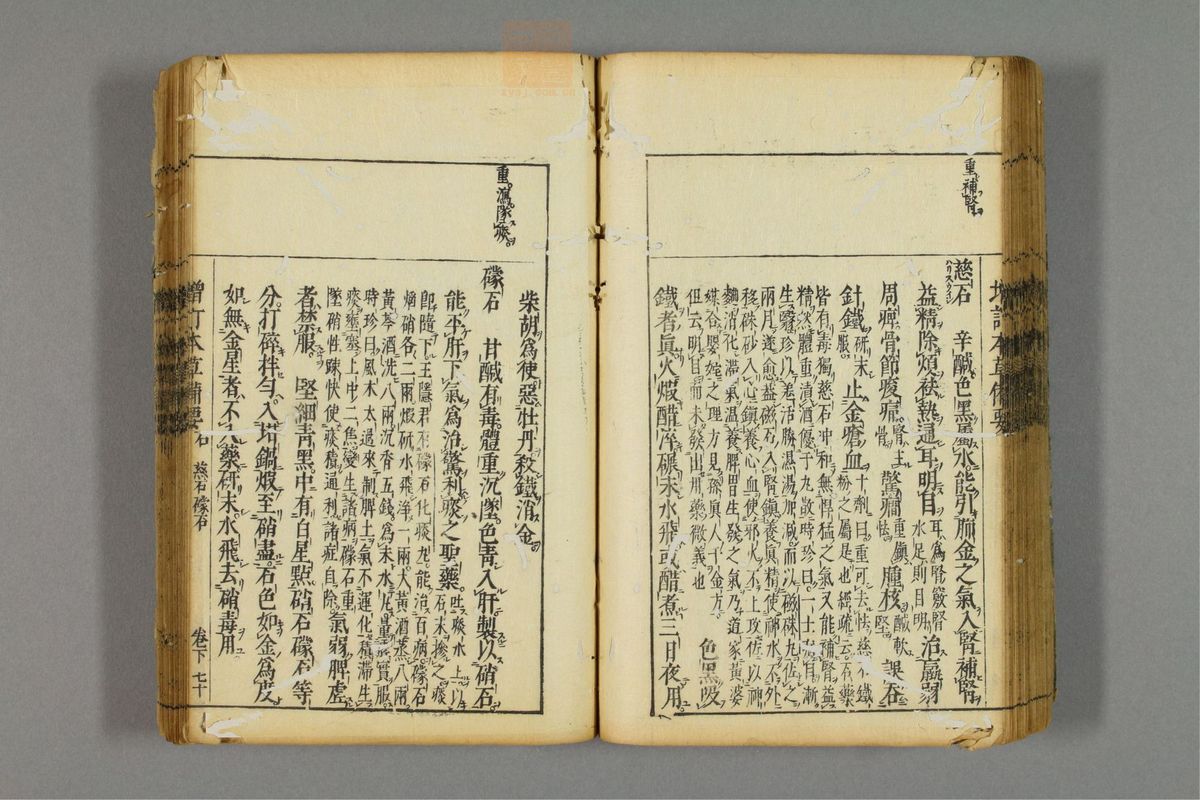 重補腎
慈石 辛鹹色黑屬水能引肺金之氣入腎補腎
益精除煩祛熱通耳明目 耳爲腎竅腎水足則目明 治羸弱
周痺骨節痠痛 腎主骨 驚癇 重鎭怯 腫核 鹹軟堅 誤吞
針鐵 研末服 止金瘡血 十劑曰重可去怯慈石鐵粉之屬是也經疏云石藥
皆有毒獨慈石冲和無悍猛之氣又能補腎益
精然體重漬酒優于丸散時珍曰一士病目漸
生翳珍以羗活勝濕湯加減而以磁硃丸佐之
兩月遂愈益磁石入腎鎭養眞精使神水不外
移硃砂入心鎭養心血使邪火不上攻佐以神
麯消化滯氣温養脾胃生發之氣乃道家黃婆
媒合嬰姹之理方見孫眞人千金方
但云明目而未發出用藥微義也 色黑吸
鐵者眞火煅醋淬碾末水飛或醋煮三日夜用
增訂本草備要
柴胡爲使惡牡丹殺鐵消金
重瀉隊痰
礞石 甘鹹有毒體重沉墜色靑入肝製以硝石
能平肝下氣爲治驚利痰之聖藥 吐痰水上以石末摻之痰
卽隨下王隱君有礞石化痰丸能治百病礞石
焰硝各二兩煅研水飛淨一兩大黃酒蒸八兩
黃芩酒洗八兩沉香五錢爲末水丸量虛實服
時珍曰風木太過來制脾土氣不運化積滯生
痰壅塞上中二焦變生諸病礞石重
墜硝性疎快使痰積通利諸症自除 氣弱脾虛
者禁服 堅細靑黑中有白星點硝石礞石等
分打碎拌勻入坩鍋煅至硝盡石色如金爲度
如無金星者不入藥研末水飛去硝毒用
增訂本草備要 石 慈石礞石 卷下 七十